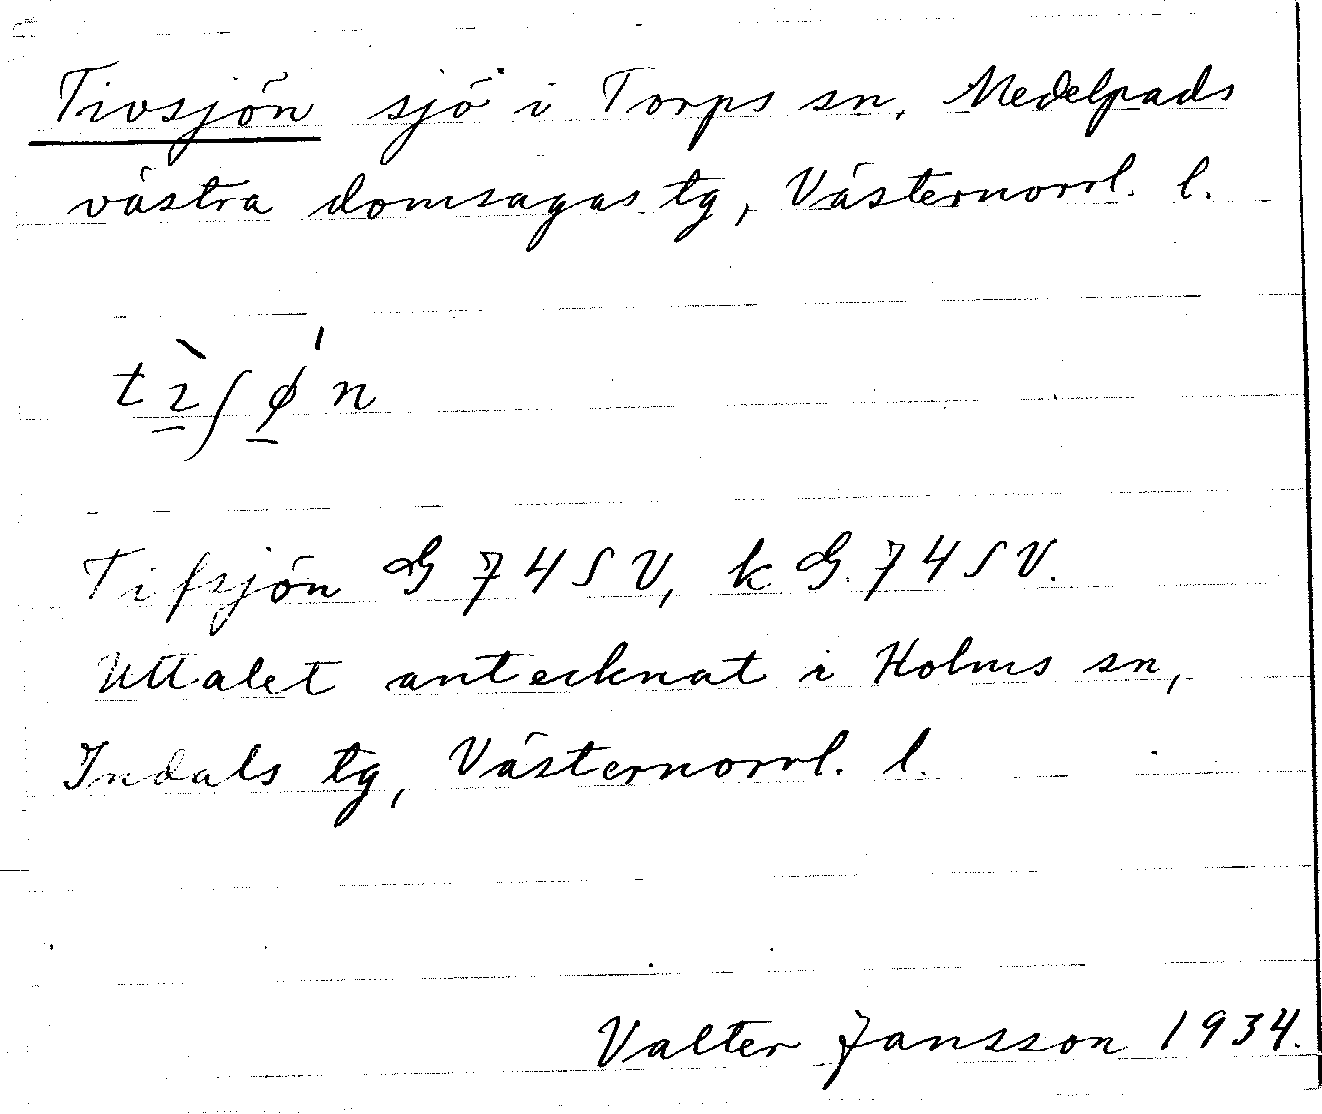 Tivsjön sjö i Torps sn, Medelpads
västra domsagas tg, Västernorrl. l.
tı̱̀ʃǿ̱n
Tifsjön G 74 SV, k G 74 SV.
Uttalet antecknat i Holms sn,
Indals tg, Västernorrl. l.
Valter Jansson 1934.